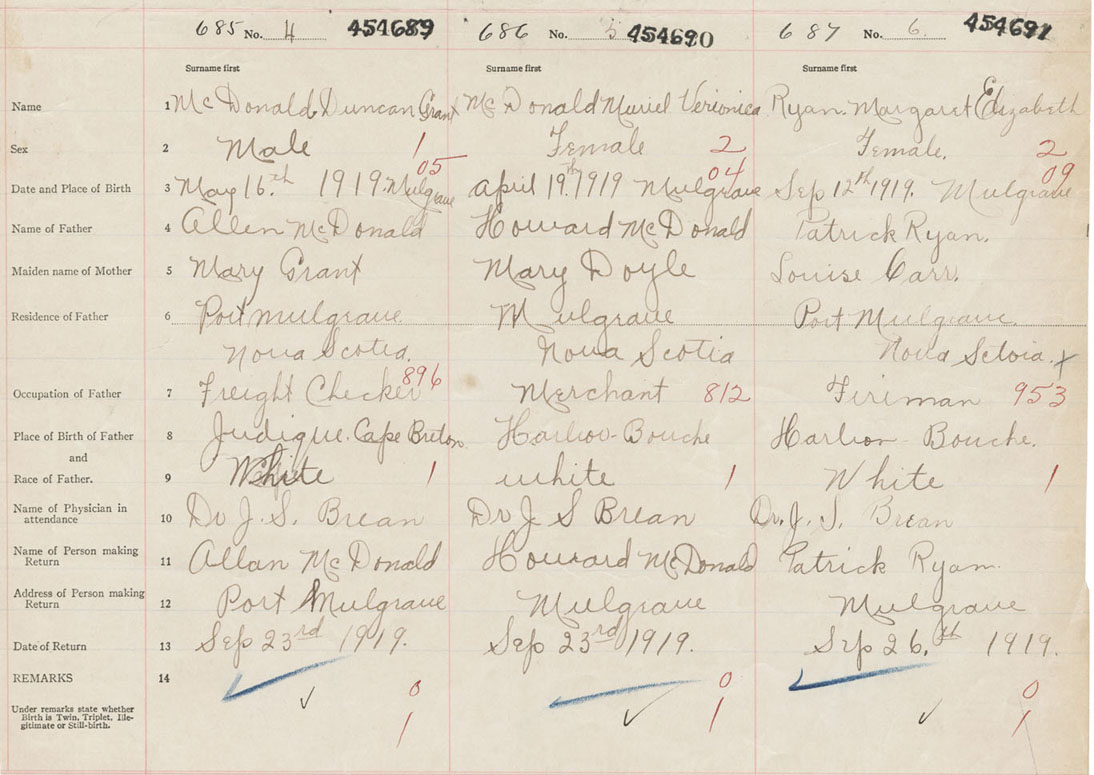 685 No. 4 454689 686 No. 5 454690 687 No. 6. 454691
Surname first Surname first Surname first
Name 1 McDonald, Duncan Grant McDonald Muriel Verionica Ryan. Margaret Elizabeth
Sex 2 Male 1 Female 2 Female. 2
05 04 09
Date and Place of Birth 3 May 16.th 1919. Mulgrave April 19.th 1919 Mulgrave Sep 12th 1919. Mulgrave
Name of Father 4 Allen McDonald Howard McDonald Patrick Ryan.
Maiden name of Mother 5 Mary Grant Mary Doyle Louise Carr.
Residence of Father 6 Port Mulgrave Mulgrave Port Mulgrave.
Nova Scotia. Nova Scotia Nova Scitoia. x
Occupation of Father 7 Freight Checker 896 Merchant 812 Firiman 953
Place of Birth of Father 8 Judique. Cape Breton Harbor-Bouche Harbor-Bouche.
and
Race of Father. 9 White 1 white 1 White 1
Name of Physician in
attendance 10 Dr J. S. Brean Dr J S Brean Dr. J. S. Brean
Name of Person making
Return 11 Allan McDonald Howard McDonald Patrick Ryan.
Address of Person making
Return 12 Port Mulgrave Mulgrave Mulgrave
Date of Return 13 Sep 23rd 1919. Sep 23rd 1919. Sep 26.th 1919.
REMARKS 14
0 0 0
Under remarks state whether
Birth is Twin, Triplet, Ille-
gitimate or Still-birth.
1 1 1